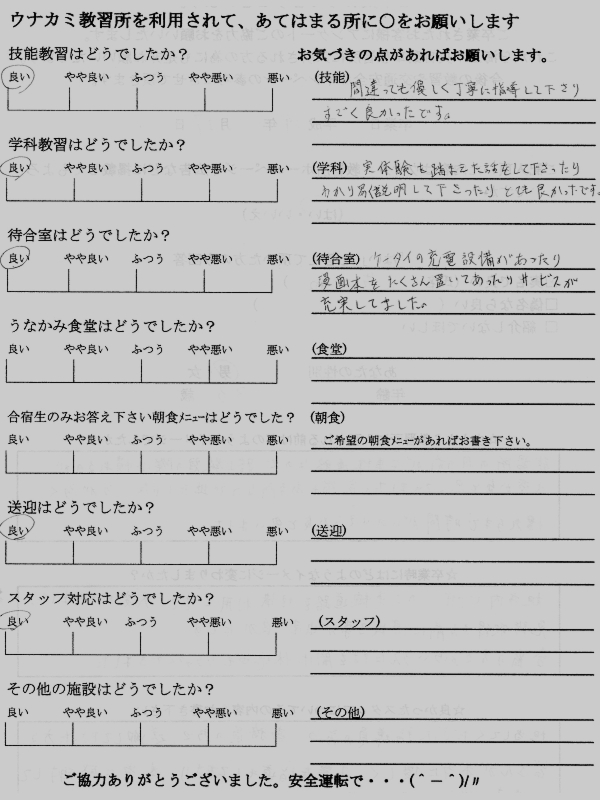 ウナカミ教習所を利用されて、あてはまる所に〇をお願いします
技能教習はどうでしたか?
お気づきの点があればお願いします。
良い やや良い ふつう やや悪い 悪い
(技能)
間違っても優しく丁寧に指導して下さり
すごく良かったです。
学科教習はどうでしたか?
良い やや良い ふつう やや悪い 悪い
(学科) 実体験を踏まえた話をして下さったり
わかり易く説明して下さったりとても良かったです。
待合室はどうでしたか?
良い やや良い ふつう やや悪い 悪い
(待合室) ケータイの充電設備があったり
漫画本をたくさん置いてあったりサービスが
充実してました。
うなかみ食堂はどうでしたか?
良い やや良い ふつう やや悪い 悪い
(食堂)
合宿生のみお答え下さい朝食メニューはどうでした?
(朝食)
良い やや良い ふつう やや悪い 悪い
ご希望の朝食メニューがあればお書き下さい。
送迎はどうでしたか?
良い やや良い ふつう やや悪い 悪い
(送迎)
スタッフ対応はどうでしたか?
良い やや良い ふつう やや悪い 悪い
(スタッフ)
その他の施設はどうでしたか?
良い やや良い ふつう やや悪い 悪い
(その他)
ご協力ありがとうございました。安全運転で・・・(＾－＾)/〃